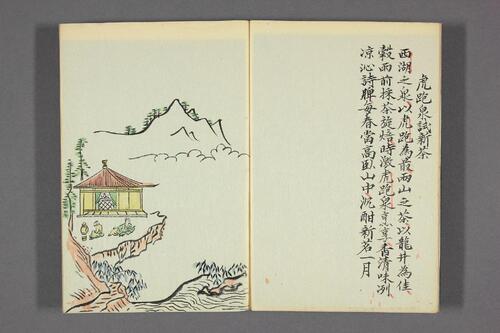 虎跑泉試新茶
西湖之泉以虎跑為最両山之茶以龍井為佳
穀雨前採茶旋焙時激虎跑泉烹享香清味冽
凉沁詩脾每春當高臥山中沉酣新茗一月